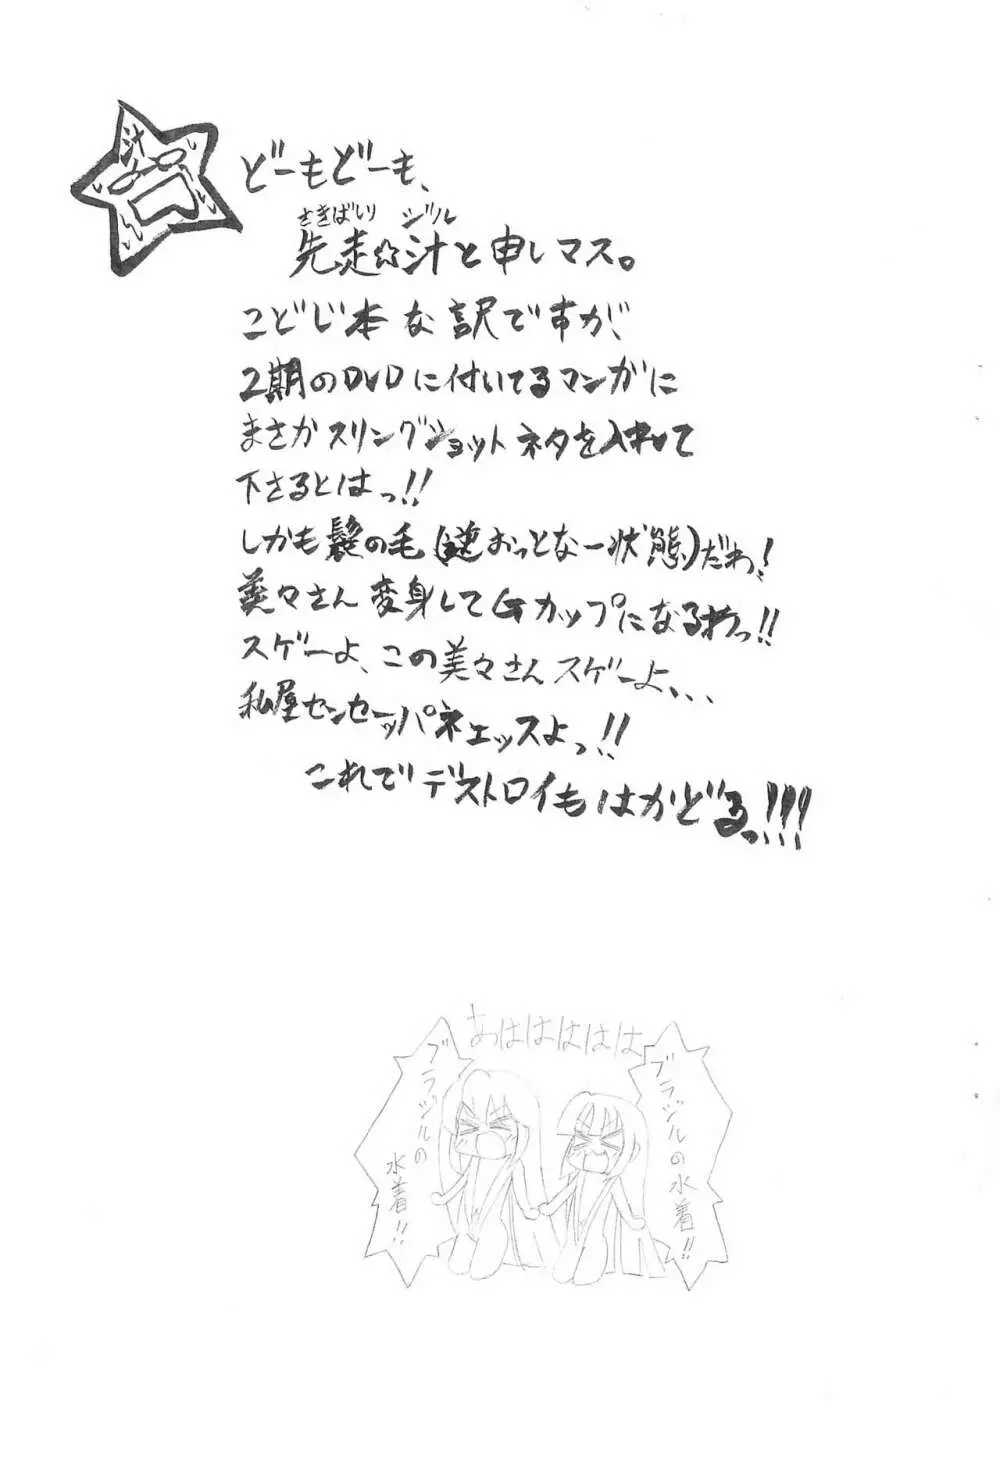 汁
どーもどーも、
さきばしり ジル
先走☆汁と申しマス。
こどじ本な訳ですが、
2期のDVDに付いてるマンガに
まさかスリングショットネタを入れて
下さるとはっ!!
しかも髪の毛(逆おっとなー状態)だわ!
美々さん変身してGカップになるわっ!!
スゲーよ、この美々さんスゲーよ、、、
私屋センセーッパネェッスよっ!!
これでデストロイもはかどるっ!!!
あはははははは
ブラジルの
水着!!
ブラジルの水着!!